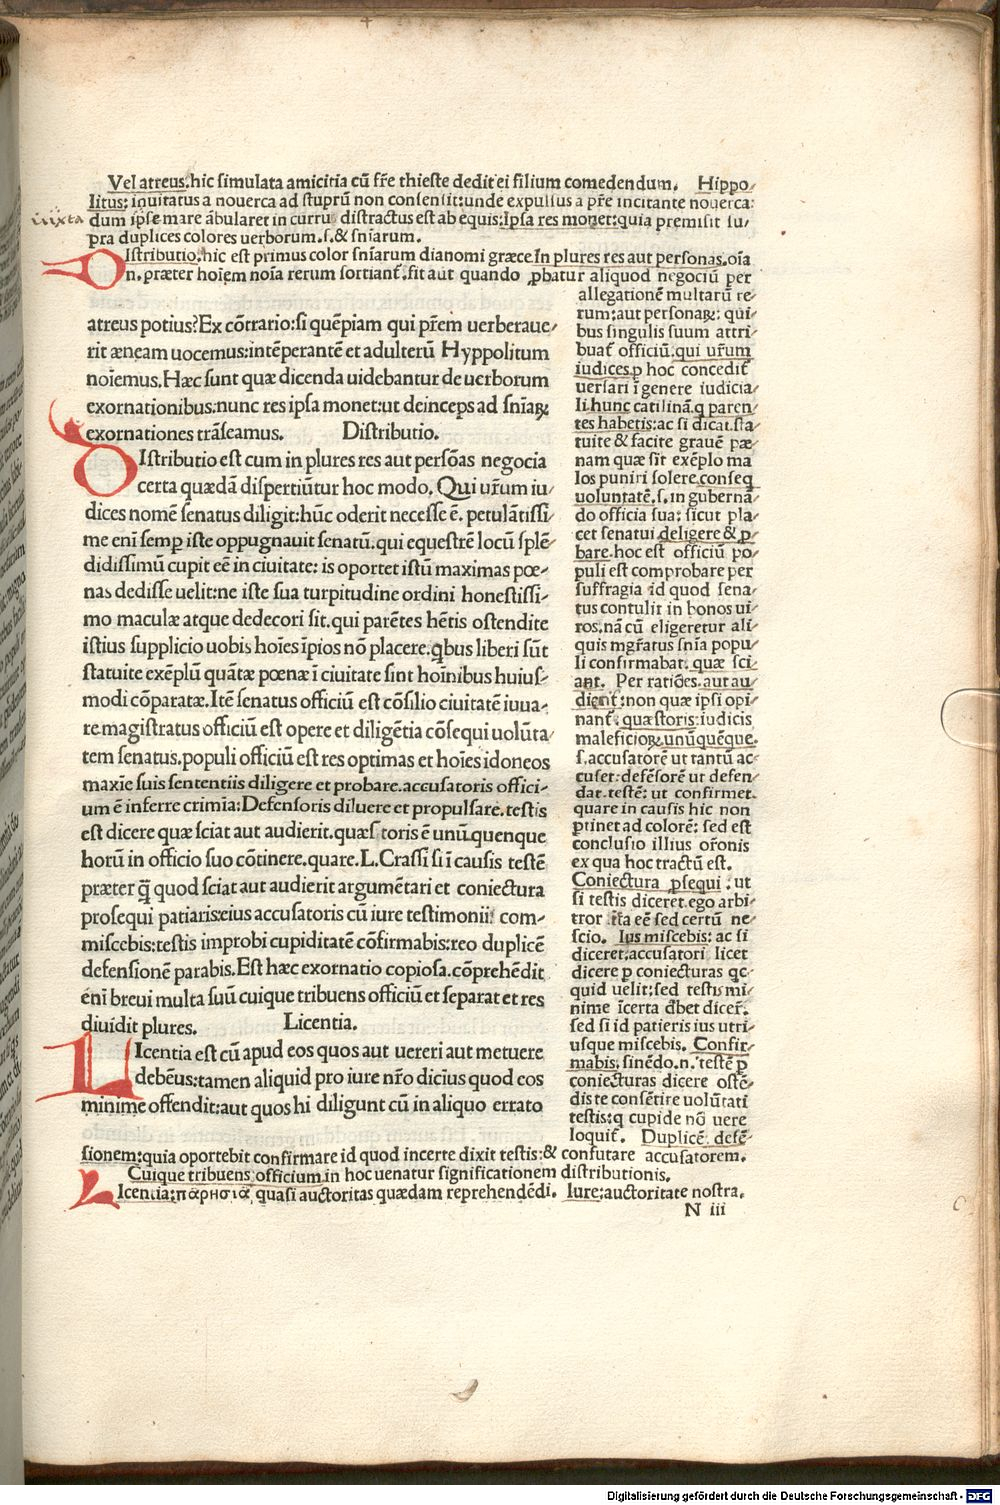 Vel atreus. hic simulata amicitia cū fr̄e thieste dedit ei filium comedendum. Hippo/
litus: inuitatus a nouerca ad stuprū non consensit: unde expulsus a pr̄e incitante nouerca:
iuxta dum ip̄se mare ābularet in curru distractus est ab equis: Ipsa res monet: quia premisit su/
pra duplices colores uerborum. s. & sn̄iarum.
DIstributio. hic est primus color sn̄iarum dianomi græce In plures res aut personas. oīa
n. præter hoīem noīa rerum sortiant̄. fit aut quando ꝓbatur aliquod negociū per
allegationē multarū re/
rum: aut personaꝝ: qui/
bus singulis suum attri/
buat̄ officiū: qui ur̄um
iudices ꝑ hoc concedit̄
uersari ī genere iudicia/
li. hunc catilinā. q paren/
tes habetis: ac si dicat. sta/
tuite & facite grauē pæ/
nam quæ sīt exēplo ma
los puniri solere. conseq
uoluntatē. s. in guberna/
do officia sua: sicut pla/
cet senatui. deligere & ꝓ/
bare. hoc est officiū po/
puli est comprobare per
suffragia id quod sena/
tus contulit in bonos ui/
ros. nā cū eligeretur ali/
quis mgr̄atus sn̄ia popu/
li confirmabat. quæ sci/
ant. Per ratiōes. aut au/
dient̄: non quæ ipsi opi/
nant̄. quæstoris: iudicis
maleficioꝝ. unūquēque.
s. accusatorē ut tantū ac/
cuset: defēsorē ut defen/
dat. testē: ut confirmet.
quare in causis hic non
ꝑtinet ad colorē: sed est
conclusio illius or̄onis
ex qua hoc tractū est.
Coniectura ꝓsequi: ut
si testis diceret. ego arbi/
tror ita eē sed certū ne/
scio. Ius miscebis: ac si
diceret. accusatori licet
dicere ꝑ coniecturas qc/
quid uelit: sed testis mi/
nime īcerta dbet dicer̄.
sed si id patieris ius utri/
usque miscebis. Confir/
mabis. sinēdo. n. testē ꝑ
coniecturas dicere ostē/
dis te consētire uolūtati
testis: q cupide nō uere
loquit̄. Duplicē. defē/
atreus potius? Ex cōtrario: si quēpiam qui pr̄em uerberaue/
rit æneam uocemus: intēperantē et adulterū Hyppolitum
noīemus. Hæc sunt quæ dicenda uidebantur de uerborum
exornationibus: nunc res ipsa monet: ut deinceps ad sn̄iaꝝ
exornationes trāseamus. Distributio.
DIstributio est cum in plures res aut persōas negocia
certa quædā dispertiūtur hoc modo. Qui ur̄um iu/
dices nomē senatus diligit: hūc oderit necesse ē. petulātissi/
me enī semꝑ iste oppugnauit senatū. qui equestrē locū splē/
didissimū cupit eē in ciuitate: is oportet istū maximas pœ/
nas dedisse uelit: ne iste sua turpitudine ordini honestissi/
mo maculæ atque dedecori sit. qui parētes hētis ostendite
istius supplicio uobis hoīes īpios nō placere. qbus liberi sūt
statuite exēplū quātæ pœnæ ī ciuitate sint hoīnibus huius/
modi cōparatæ. Itē senatus officiū est cōsilio ciuitatē iuua/
re. magistratus officiū est opere et diligētia cōsequi uolūta/
tem senatus. populi officiū est res optimas et hoīes idoneos
maxīe suis sententiis diligere et probare. accusatoris offici/
um ē inferre crimīa: Defensoris diluere et propulsare. testis
est dicere quæ sciat aut audierit. quæstoris ē unū quenque
horū in officio suo cōtinere. quare. L. Crassi si ī causis testē
præter q̄ quod sciat aut audierit argumētari et coniectura
prosequi patiaris: eius accusatoris cū iure testimonii: com/
miscebis: testis improbi cupiditatē cōfirmabis: reo duplicē
defensionē parabis. Est hæc exornatio copiosa. cōprehēdit
enī breui multa suū cuique tribuens officiū et separat et res
diuidit plures. Licentia.
LIcentia est cū apud eos quos aut uereri aut metuere
debēus: tamen aliquid pro iure nr̄o dicius quod eos
minime offendit: aut quos hi diligunt cū in aliquo errato
sionem: quia oportebit confirmare id quod incerte dixit testis: & confutare accusatorem.
Cuique tribuens officium in hoc uenatur significationem distributionis.
LIcentia: παρησια quasi auctoritas quædam reprehendēdi. Iure: auctoritate nostra.
N iii
Digitalisierung gefördert durch die Deutsche Forschungsgemeinschaft - DFG